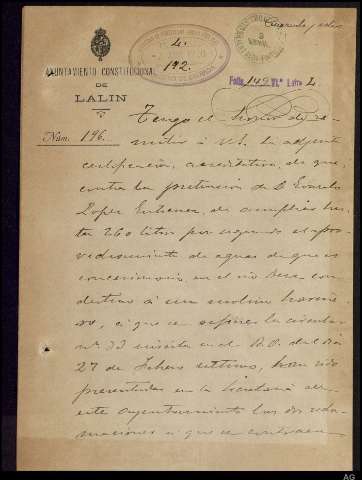 4.
192.
AYUNTAMIENTO CONSTITUCIONAL
DE
LALIN
Núm. 196.
Folio 149 Vº Libro 2
Tengo el honor de re-
mitir á V.S. la adjunta
certificación, acreditativa de que
contra la pretension de D. Evaristo
Lopez, de ampliar has-
ta 260 litros por segundo el apro-
vechamiento de aguas de que es
concesionario, en el rio Deza con
destino á un molino harine-
ro, á que se refiere la circular
nº 33 inserta en el B.O. del dia
27 de Febrero último, han sido
presentadas en la Secretaria de
este Ayuntamiento las dos recla-
maciones á que se contraen
AG